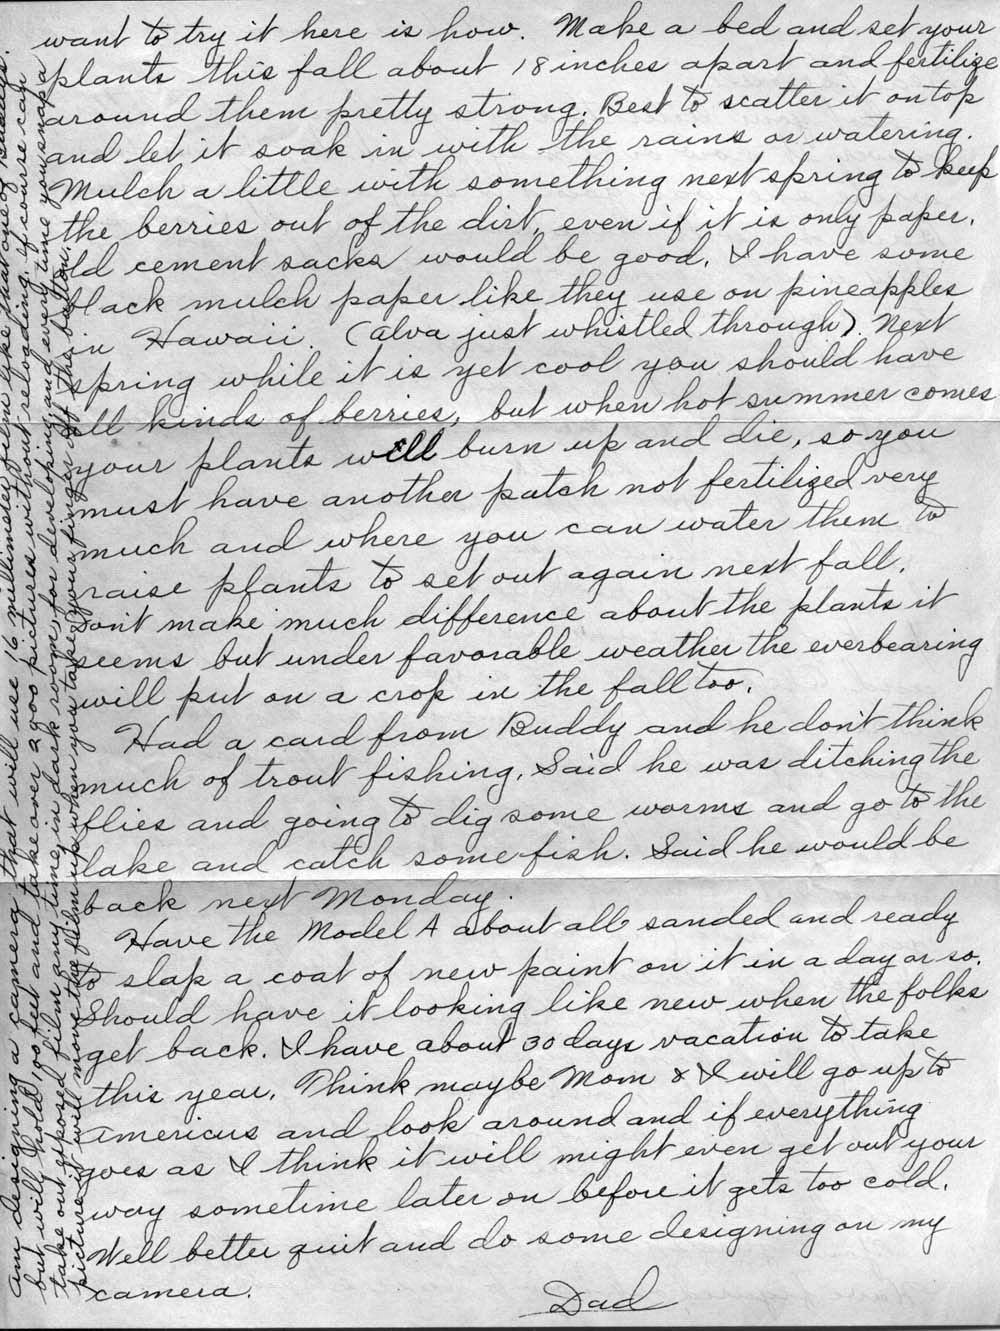 want to try it here is how. Make a bed and set your
plants this fall about 18 inches apart and fertilize
around them pretty strong. Best to scatter it on top
and let it soak in with the rains or watering.
Mulch a little with something next spring to keep
the berries out of the dirt, even if it is only paper.
Old cement sacks would be good. I have some
black mulch paper like they use on pineapples
in Hawaii. (Alva just whistled through). Next
spring while it is yet cool you should have
all kinds of berries, but when hot summer comes
your plants will burn up and die, so you
must have another patch not fertilized very
much and where you can water them to
raise plants to set out again next fall.
Don't make much difference about the plants it
seems but under favorable weather the everbearing
will put on a crop in the fall too.
Had a card from Buddy and he don't think
much of trout fishing. Said he was ditching the
flies and going to dig some worms and go to the
lake and catch some fish. Said he would be
back next Monday.
Have the Model A about all sanded and ready
to slap a coat of new paint on it in a day or so.
Should have it looking like new when the folks
get back. I have about 30 days vacation to take
this year. Think maybe Mom & I will go up to
Americus and look around and if everything
goes as I think it will might even get out your
way sometime later on before it gets too cold.
Well better quit and do some designing on my
camera.
Dad
am designing a camera that will use 16 millimeter film like that one of Buddys.
but will hold 100 feet and take over 2900 pictures without reloading. Of course can
take out exposed film any time in dark room, for developing, and every time you snap a
picture it will move the film up when you take your finger off the button.